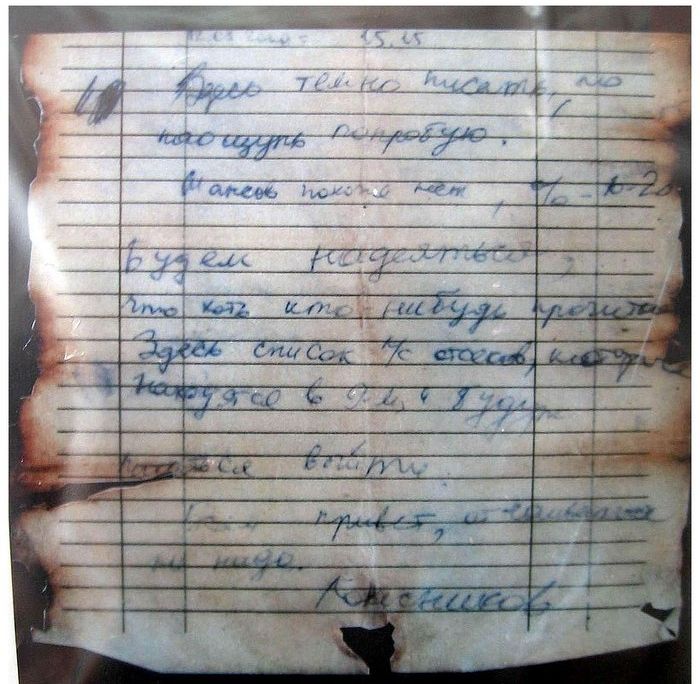 12.08.2000 г. 15.15
Здесь темно писать, но
наощупь попробую.
Шансов похоже нет, % - 10-20
Будем надеяться,
что хоть кто-нибудь прочитает
Здесь список л/с отсеков, которые
находятся в 9-м и будут
пытаться выйти.
Всем привет, отчаиваться
не надо.
Колесников